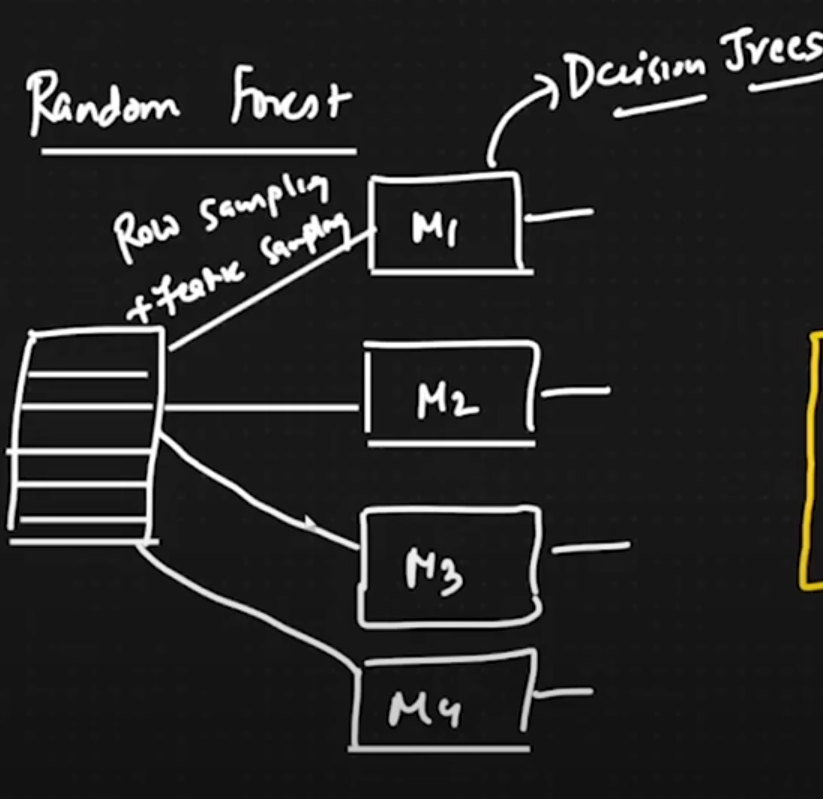 Random Forest
Decision Trees
Row Sampling
+ Feature Sampling
M1
M2
M3
M4